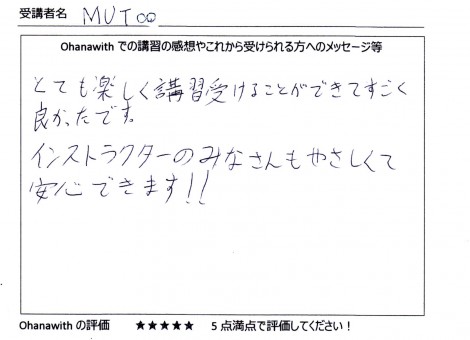 受講者名 MUT∞
Ohanawith での講習の感想やこれから受けられる方へのメッセージ等
とても楽しく講習受けることができてすごく
良かったです。
インストラクターのみなさんもやさしくて
安心できます!!
Ohanawith の評価 ★★★★★ 5 点満点で評価してください！